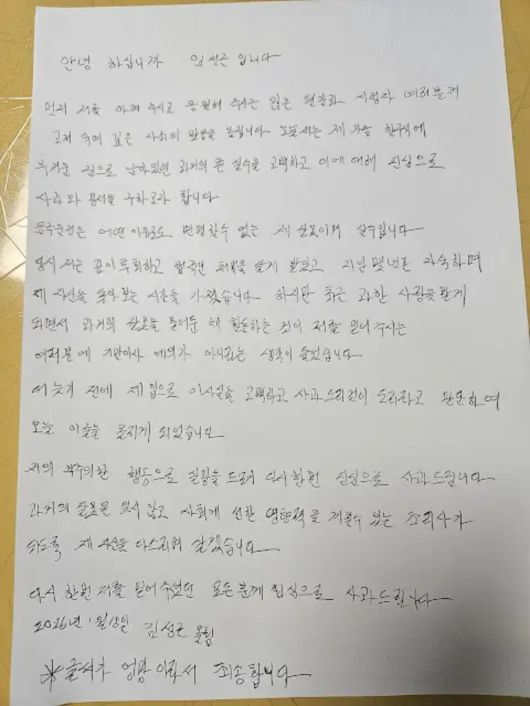 안녕 하십니까 임성근 입니다
먼저 저를 아껴 주시고 응원해 주시는 많은 팬분과 시청자 여러분께
고개 숙여 깊은 사죄의 말씀을 올립니다 오늘 저는 제 가슴 한구석에
무거운 짐으로 남아있던 과거의 큰 실수를 고백하고 이에 대해 진심으로
사과와 용서를 구하고자 합니다
음주운전은 어떤 이유로도 변명할수 없는 제 잘못이며 실수입니다
당시 저는 깊이 후회하고 법적인 처벌을 달게 받았고 지난 몇년은 자숙하며
제 자신을 돌아 보는 시간을 가졌습니다 하지만 최근 과한 사랑을 받게
되면서 과거의 잘못을 묻어둔 채 활동하는 것이 저를 믿어 주시는
여러분에 기만이자 예의가 아니라는 생각이 들었습니다
더 늦기 전에 제 입으로 이사실을 고백하고 사과 드리것이 도리라고 판단하여
오늘 이글을 올리게 되었습니다
저의 부주의한 행동으로 실망을 드려 다시한번 진심으로 사과 드립니다
과거의 잘못을 잊지 않고 사회에 선한 영향력을 끼칠수 있는 조리사가
되도록 제 자신을 다스리며 살겠습니다
다시 한번 저를 믿어 주셨던 모든 분께 진심으로 사과드립니다
2026년 1월18일 임성근 올림
※글씨가 엉망이라서 죄송합니다